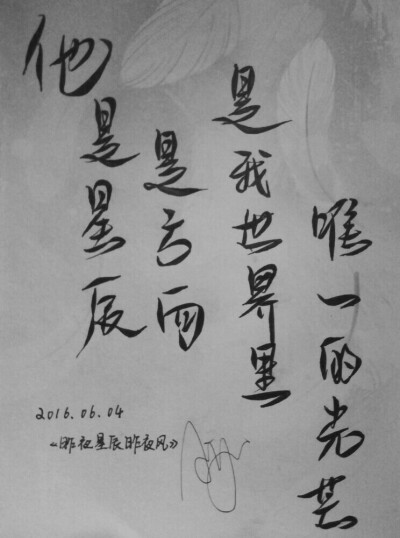 他
是星辰
是方向
是我世界里
唯一的光芒
2016.06.04
《昨夜星辰昨夜风》